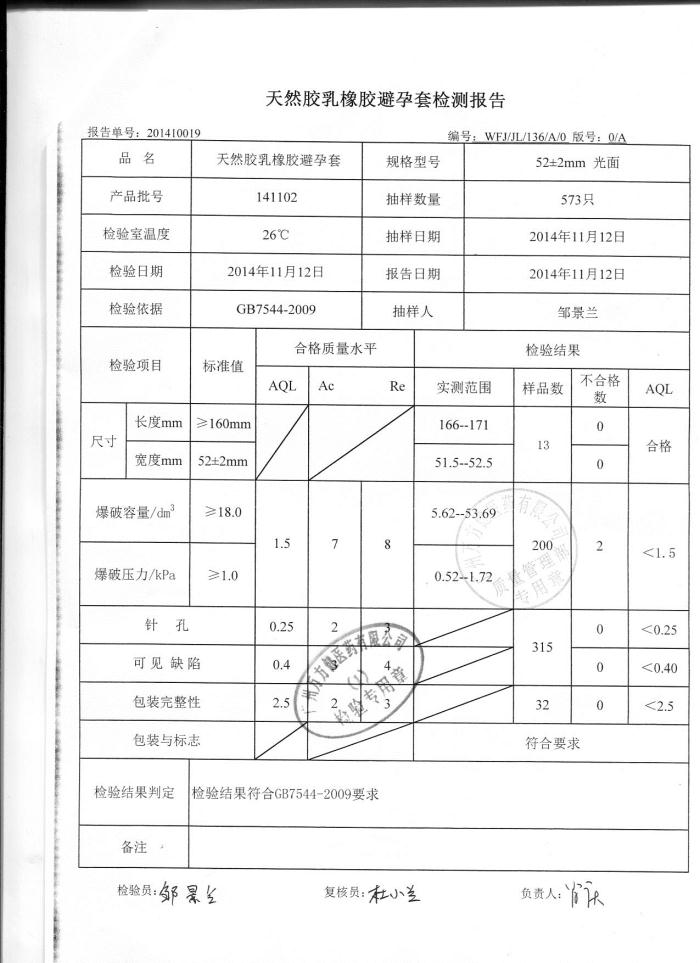 天然胶乳橡胶避孕套检测报告
报告单号：201410019 编号：WFJ/JL/136/A/0 版号：0/A
品 名 天然胶乳橡胶避孕套 规格型号 52±2mm 光面
产品批号 141102 抽样数量 573只
检验室温度 26℃ 抽样日期 2014年11月12日
检验日期 2014年11月12日 报告日期 2014年11月12日
检验依据 GB7544-2009 抽样人 邹景兰
检验项目 标准值 合格质量水平 检验结果
AQL Ac Re 实测范围 样品数 不合格数 AQL
尺寸 长度mm ≥160mm 166--171 13 0 合格
宽度mm 52±2mm 51.5--52.5 0
爆破容量/dm³ ≥18.0 1.5 7 8 5.62--53.69 200 2 <1.5
爆破压力/kPa ≥1.0 0.52--1.72
针 孔 0.25 2 3 315 0 <0.25
可见 缺陷 0.4 4 0 <0.40
包装完整性 2.5 2 3 32 0 <2.5
包装与标志 符合要求
检验结果判定 检验结果符合GB7544-2009要求
备注
检验员：邹景兰 复核员：杜小兰 负责人：
州万方健医药有限公司
(1)
检验专用章
医药有限公司
质量管理部
专用章